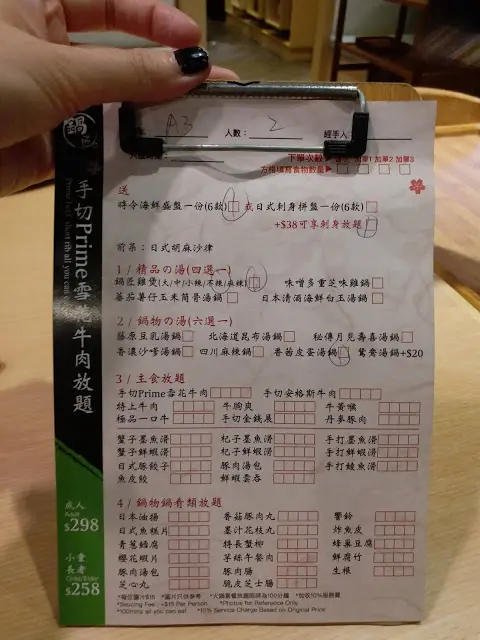 A3 人數： 2 經手人
下單次數 加單1 加單2 加單3
方格填寫食物數量
鍋
手切Prime雪花牛肉放題
送
時令海鮮盛盤一份(6款)□ 或日式刺身拼盤一份(6款)□
+$38可享刺身放題□
前菜：日式胡麻沙律
1 / 精品の湯(四選一)
鍋匠雞煲(大/中/小辣/不辣/麻辣)□ 味噌多重芝味雞鍋□
蕃茄薯仔玉米筒骨湯鍋□ 日本清酒海鮮白玉湯鍋□
2 / 鍋物の湯(六選一)
藤原豆乳湯鍋□ 北海道昆布湯鍋□ 秘傳月見壽喜湯鍋□
香濃沙嗲湯鍋□ 四川麻辣鍋□ 香茜皮蛋湯鍋□ 鴛鴦湯鍋+$20
3 / 主食放題
手切Prime雪花牛肉 手切安格斯牛肉
特上牛肉 牛胸爽 牛黃喉
極品一口牛 手切金錢展 丹麥豚肉
蟹子墨魚滑 杞子墨魚滑 手打墨魚滑
蟹子鮮蝦滑 杞子鮮蝦滑 手打鮮蝦滑
日式豚餃子 豚肉湯包 手打鯪魚滑
魚皮餃 鮮蝦雲吞
4 / 鍋物鍋肴類放題
日本油揚 香菇豚肉丸 響鈴
日式魚糕片 墨汁花枝丸 炸魚皮
青蔥鱈腐 特長蟹柳 蜂巢豆腐
櫻花蝦片 茅絲午餐肉 鮮腐竹
豚肉湯包 豚肉腸 生根
芝心丸 脆皮芝士腸
成人
Adult
$298
小童
長者
Child/Elder
$258
*每位醬汁$15 *圖片只供參考 *火鍋套餐放題限時為100分鐘 *加收10%服務費
*Saucing Fee : +$15 Per Person *Photos for Reference Only
*100mins all you can eat *10% Service Charge Based on Original Price